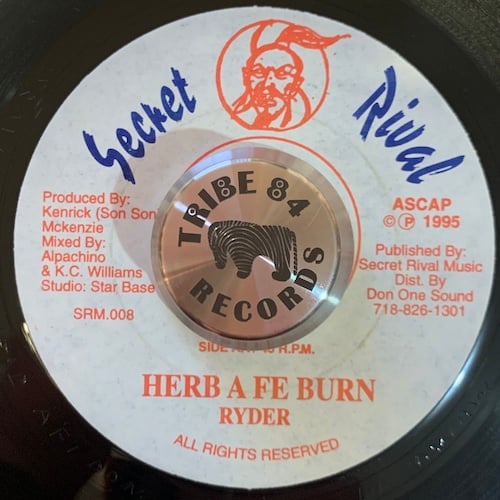 Secret Rival
Produced By:
Kenrick (Son Son
Mckenzie
Mixed By:
Alpachino
& K.C. Williams
Studio: Star Base
SRM.008
TRIBE 84
RECORDS
ASCAP
© ℗ 1995
Published By:
Secret Rival Music
Dist. By
Don One Sound
718-826-1301
SIDE
R.P.M.
HERB A FE BURN
RYDER
ALL RIGHTS RESERVED